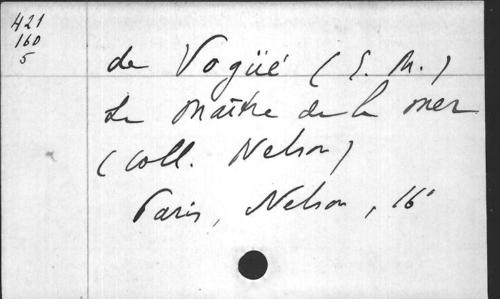 421
160
5
de Vogüé (E. M.)
Le Maître de la mer
(Coll. Nelson)
Paris, Nelson, 16°